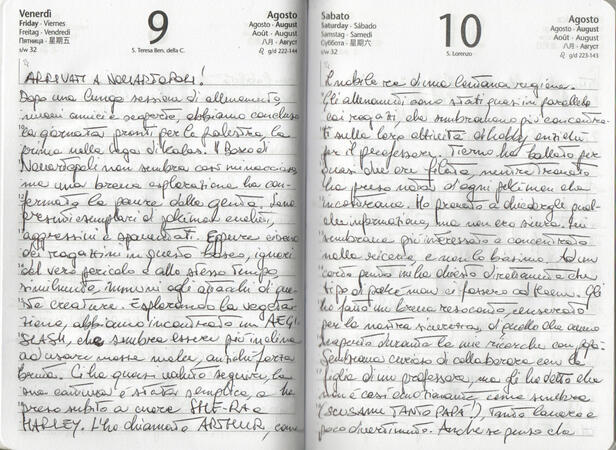 Venerdì
Friday · Viernes
Freitag · Vendredi
Пятница · 星期五
s/w 32
9
S. Teresa Ben. della C.
Agosto
Agosto · August
Août · August
八月 · Август
g/d 222-144
ARRIVATI A NOVARTOPOLI!
Dopo una lunga sessione di allenamento,
nuovi amici e scoperte, abbiamo concluso
la giornata pronti per la palestra, la
prima nella Lega di Kalos. Il Bosco di
Novartopoli non sembra così minaccioso
ma una breve esplorazione ha con-
fermato le paure della gente. Sono
presenti esemplari di pokémon
aggressivi e spaventati. Eppure
dei ragazzini in questo bosco, ignari
del vero pericolo e allo stesso tempo
immuni agli attacchi di que-
ste creature. Esplorando la vegeta-
zione, abbiamo incontrato un AEGI-
SLASH, che sembra essere più incline
ad usare mosse anziché forza
bruta. Ci ha quasi voluto seguire, la
sua cattura è stata semplice e ha
preso subito a cuore SHE-RA e
HARLEY. L'ho chiamato ARTHUR, come
Sabato
Saturday · Sábado
Samstag · Samedi
Суббота · 星期六
s/w 32
10
S. Lorenzo
Agosto
Agosto · August
Août · August
八月 · Август
g/d 223-143
il nobile re di una lontana regione.
Gli allenamenti sono stati quasi in parallelo
coi ragazzi, che sembravano più concentra-
ti sulla loro attività di hobby, anziché
per il professore. Tierno ha ballato per
quasi due ore filate, mentre Trovato
ha preso nota di ogni pokémon che
incontrava. Ho provato a chiedergli qual-
che informazione, ma non ero sicura. Mi
sembrava più interessato e concentrato
nella ricerca, e non lo biasimo. Ad un
certo punto mi ha chiesto direttamente che
tipo di pokémon ci fossero ad Hoenn. Gli
ho fatto un breve resoconto, censurato
per la nostra sicurezza, di quello che avevo
scoperto durante le mie ricerche con papà.
Sembrava curioso di collaborare con la
figlia di un professore, ma gli ho detto che
non è così emozionante come sembra
(SCUSAMI TANTO PAPA'!), tanto lavoro e
poco divertimento. Anche se penso che